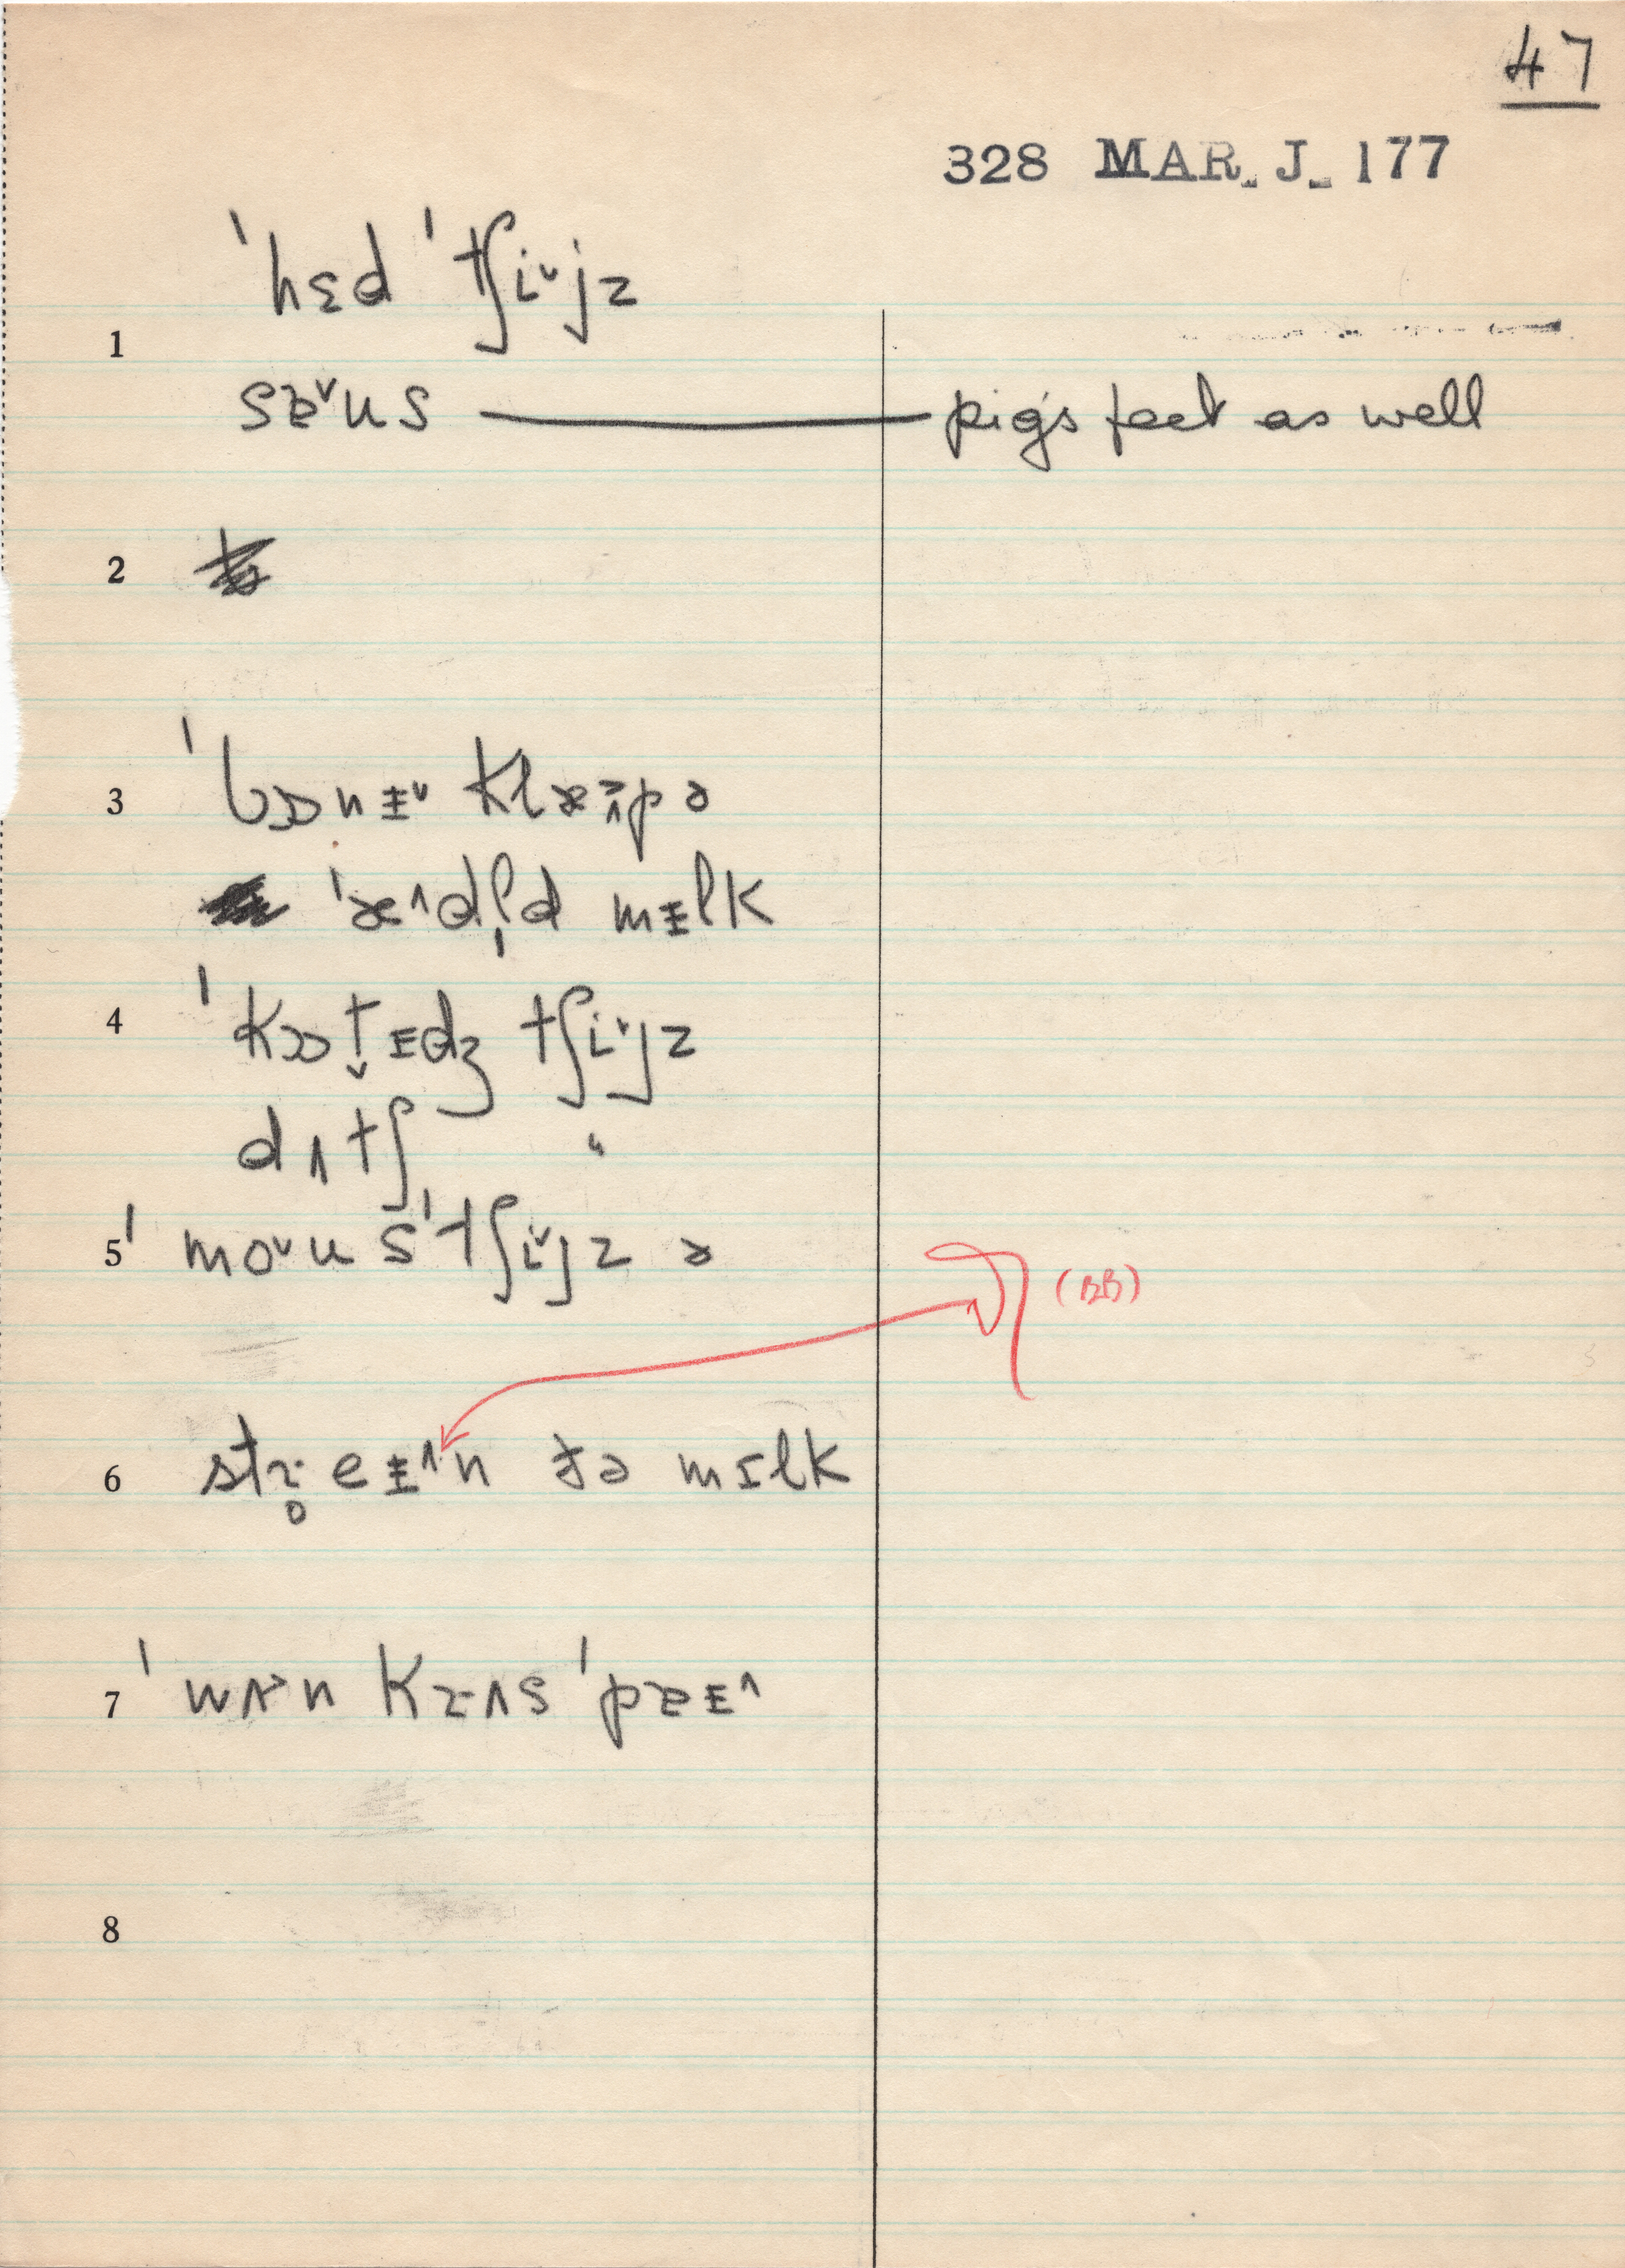 47
328 MAR. J. 177
ˈhɛd ˈtʃi˅jz
1
sɐ˅us — pig's feet as well
2
3 ˈbɒnᵻ˅ klæ
ˈæ˄dl̩d mᵻlk
4 ˈkɒt̬ɪdʒ tʃi˅jz
dʌtʃ "
5 ˈmo˅usˈtʃi˅jz ə
(BB)
6 str̥eᵻ˄n ðə mɪlk
7 ˈwʌ˃n krʌsˈpɐᵻ˄
8